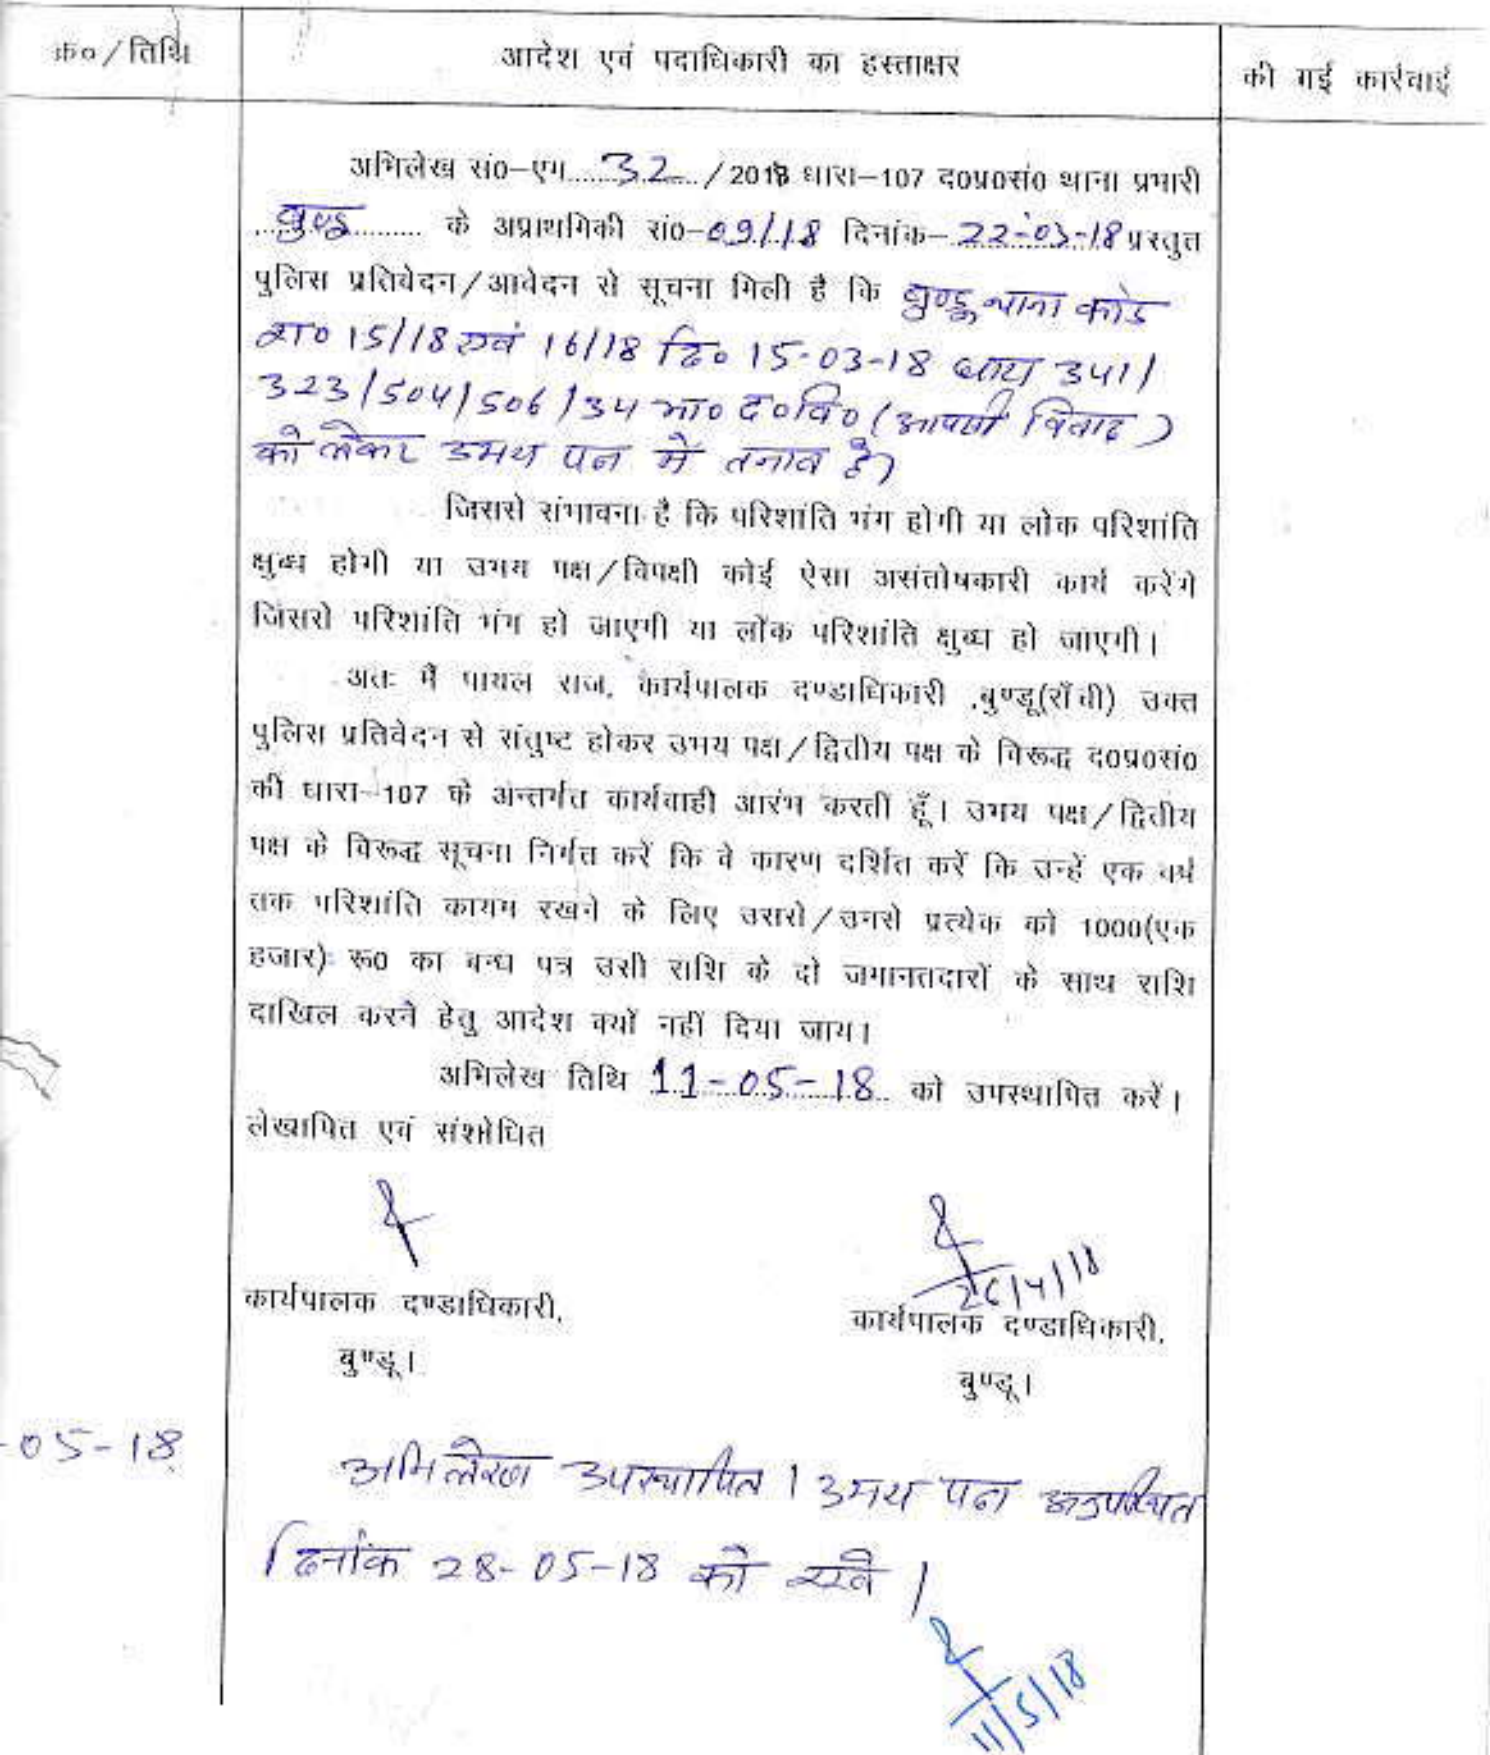 क्र० / तिथि
आदेश एवं पदाधिकारी का हस्ताक्षर
की गई कार्रवाई
अभिलेख सं०–एम......32....../2018 धारा–107 द०प्र०सं० थाना प्रभारी
....बुण्डू.......... के अप्राथमिकी सं०–09/18 दिनांक–22-03-18 प्रस्तुत
पुलिस प्रतिवेदन/आवेदन से सूचना मिली है कि बुण्डू थाना कांड
सं० 15/18 एवं 16/18 दि० 15-03-18 धारा 341/
323/504/506/34 भा० द० वि० (आपसी विवाद)
को लेकर उभय पक्ष में तनाव है।
जिससे संभावना है कि परिशांति भंग होगी या लोक परिशांति
क्षुब्ध होगी या उभय पक्ष/विपक्षी कोई ऐसा असंतोषकारी कार्य करेंगे
जिससे परिशांति भंग हो जाएगी या लोक परिशांति क्षुब्ध हो जाएगी।
अतः मैं पायल राज, कार्यपालक दण्डाधिकारी ,बुण्डू(राँची) उक्त
पुलिस प्रतिवेदन से संतुष्ट होकर उभय पक्ष/द्वितीय पक्ष के विरूद्ध द०प्र०सं०
की धारा–107 के अन्तर्गत कार्यवाही आरंभ करती हूँ। उभय पक्ष/द्वितीय
पक्ष के विरूद्ध सूचना निर्गत करें कि वे कारण दर्शित करें कि उन्हें एक वर्ष
तक परिशांति कायम रखने के लिए उससे/उनसे प्रत्येक को 1000(एक
हजार) रू० का बन्ध पत्र उसी राशि के दो जमानतदारों के साथ राशि
दाखिल करने हेतु आदेश क्यों नहीं दिया जाय।
अभिलेख तिथि 11-05-18 को उपस्थापित करें।
लेखापित एवं संशोधित
26/4/18
कार्यपालक दण्डाधिकारी,
कार्यपालक दण्डाधिकारी,
बुण्डू।
बुण्डू।
-05-18
अभिलेख उपस्थापित। उभय पक्ष अनुपस्थित
दिनांक 28-05-18 को रखें।
11/5/18